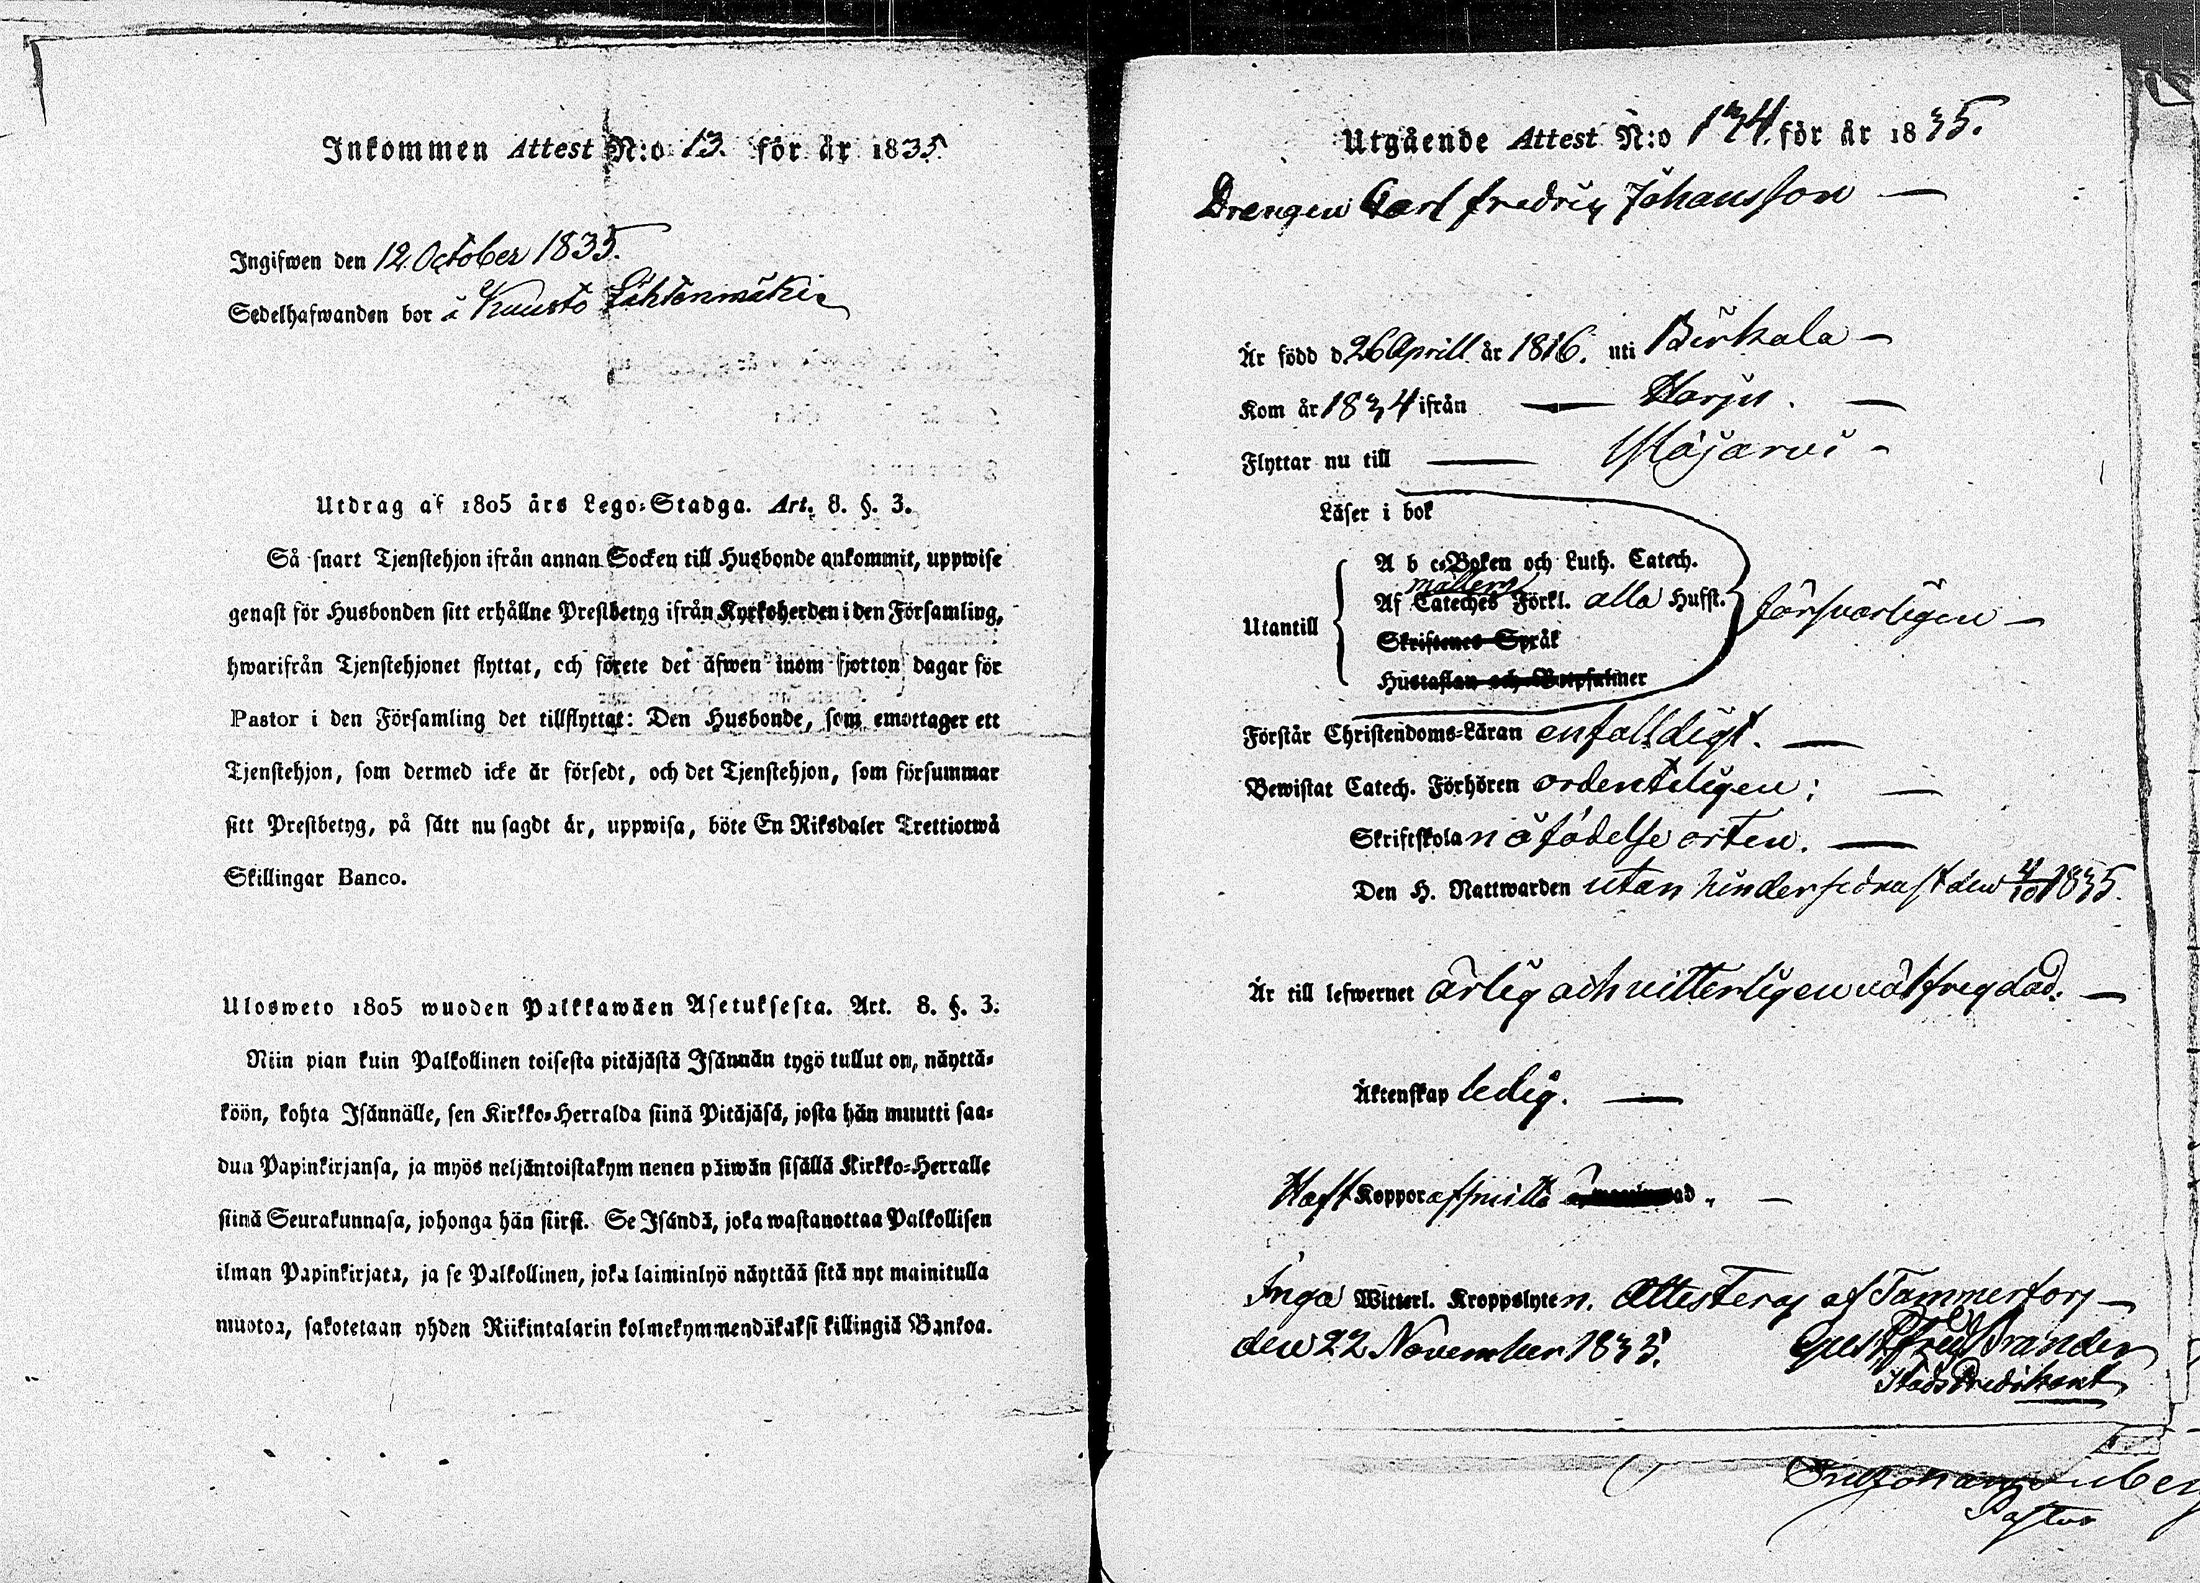 Inkommen Attest N:o 13. för år 1835.
Ingifwen den 12 October 1835.
Sedelhafwanden bor å Kuusto Lähtenmäki
Utdrag af 1805 års Lego-Stadga. Art. 8. §. 3.
Så snart Tjenstehjon ifrån annan Socken till Husbonde ankommit, uppwise
genast för Husbonden sitt erhållne Prestbetyg ifrån Kyrkoherden i den Församling,
hwarifrån Tjenstehjonet flyttat, och förete det äfwen inom fjorton dagar för
Pastor i den Församling det tillflyttat: Den Husbonde, som emottager ett
Tjenstehjon, som dermed icke är försedt, och det Tjenstehjon, som försummar
sitt Prestbetyg, på sätt nu sagdt är, uppwisa, böte En Riksdaler Trettiotwå
Skillingar Banco.
Ulosweto 1805 wuoden Palkkawäen Asetuksesta. Art. 8. §. 3.
Niin pian kuin Palkollinen toisesta pitäjästä Isännän tygö tullut on, näyttä-
köön, kohta Isännälle, sen Kirkko-Herralda siinä Pitäjäsä, josta hän muutti saa-
dun Papinkirjansa, ja myös neljäntoistakym nenen päiwän sisällä Kirkko-Herralle
siinä Seurakunnasa, johonga hän siirsi. Se Isändä, joka wastanottaa Palkollisen
ilman Papinkirjata, ja se Palkollinen, joka laiminlyö näyttää sitä nyt mainitulla
muotoa, sakotetaan yhden Riikintalarin kolmekymmendäkaksi killingiä Bankoa.
Utgående Attest N:o 134. för år 1835.
Drengen Carl Fredric Johansson —
Är född d 26 Aprill år 1816. uti Birkala —
Kom år 1834 ifrån — Harju. —
Flyttar nu till —
Läser i bok
A b c-Boken och Luth. Catech.
Af Cateches Förkl. alla Husst.
Utantill
försvarligen —
Skriftenes Språk
Hustaflan och Botpsalmer
Förstår Christendoms-Läran enfalldigt. —
Bewistat Catech. Förhören ordenteligen; —
Skriftskolan å födelse orten. —
Den H. Nattwarden utan hinder sednast den 4/10 1835.
Är till lefwernet ärlig och vitterligen väl fregdad. —
Äktenskap ledig. —
Haft Koppor af smitta —
Inga Witterl. Kroppslyten. Attesteras af Tammerfors —
den 22 November 1835. Brander
Stads Predikant
Pastor